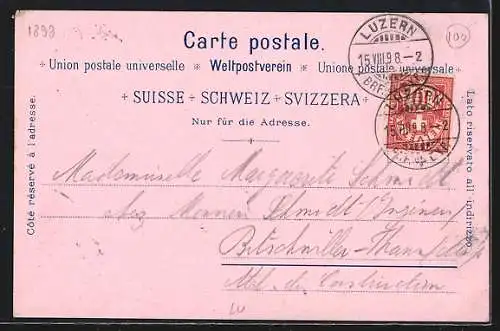 1898
100
Carte postale.
LUZERN
15.VIII.98.-2
BRF.
Union postale universelle Weltpostverein Unione postale universale
SUISSE SCHWEIZ SVIZZERA
Nur für die Adresse.
LUZERN
15.VIII.98.-2
Côté réservé à l'adresse.
Lato riservato all'indirizzo.
Mademoiselle Marguerite Schmidt
chez Monsieur Schmidt (Ingénieur
Bitschwiller-Thann
Atel. de Construction